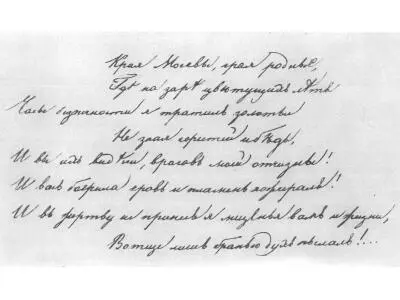 Края Москвы, края родные,
Гдѣ на зарѣ цвѣтущихъ лѣтъ
Часы безпечности я тратилъ золотые
Не зная горестей и бѣдъ,
И вы ихъ видѣли, враговъ моей отчизны!
И васъ багрила кровь и пламень пожиралъ!
И въ жертву не принесъ я мщенья вамъ и жизни,
Вотще лишь бранью духъ пылалъ!...